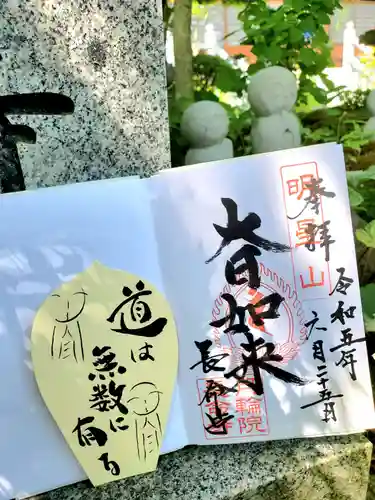 奉拝
令和五年
六月二十五日
明星山
大日如来
長命寺
輪院
道は
無数に
有る